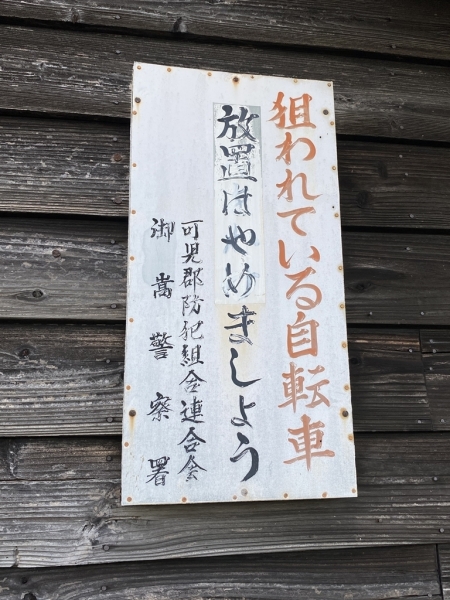 狙われている自転車
放置はやめましょう
可児郡防犯組合連合会
御嵩警察署